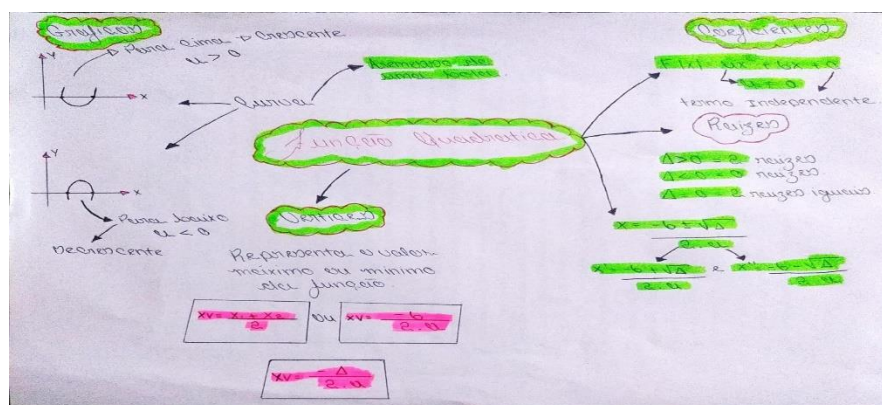 Gráficos
Y
Para cima → Crescente
a > 0
X
Curva
Y
X
Para baixo
a < 0
Decrescente
uma
Função Quadrática
Vértices
Representa o valor
máximo ou mínimo
da função
XV = X₁ + X₂
2
ou
XV = -b
2.a
XV = -Δ
2.a
Coeficientes
termo independente
Raízes
Δ>0 = 2 raízes
raízes
Δ = 0 = 2 raízes iguais
X = -b ± √Δ
2.a
X' = -b + √Δ
2.a
e
X'' = -b - √Δ
2.a